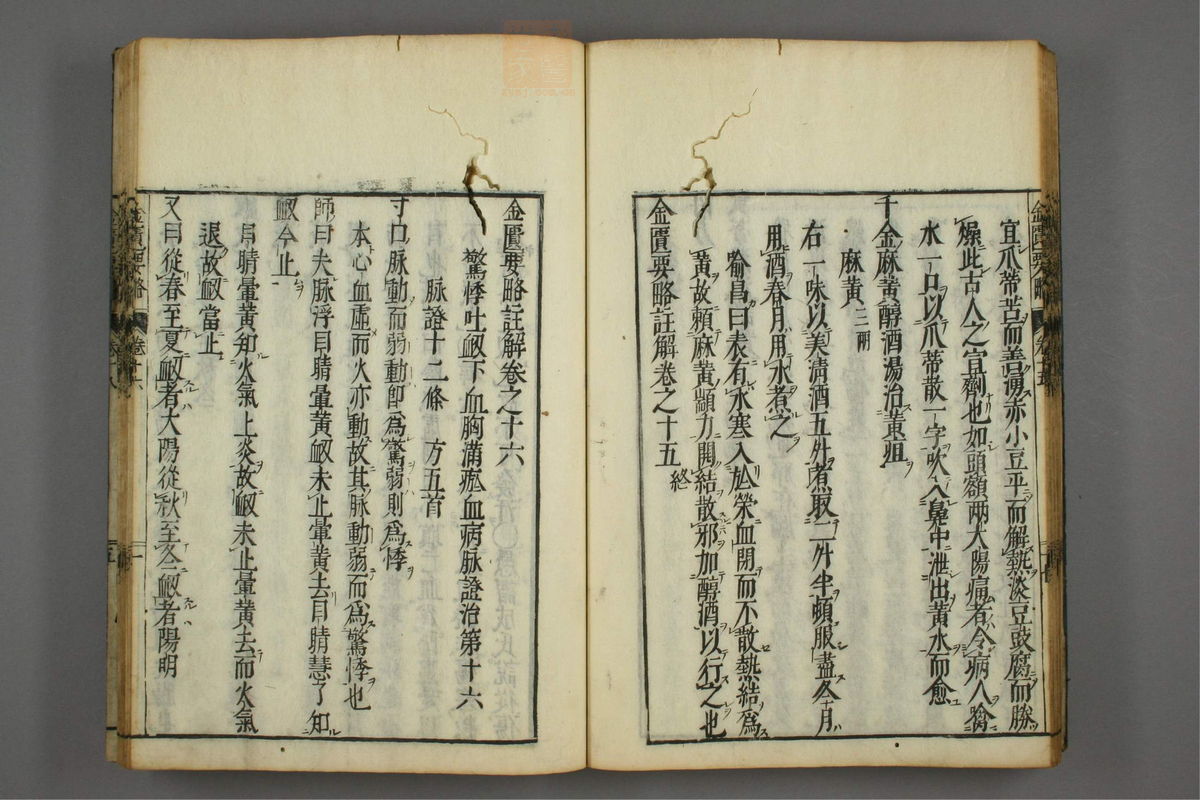 宜爪蒂苦而善湧赤小豆平而解熱淡豆豉腐而勝
燥此古人之宣劑也如頭額两大陽痛者令病人含
水一口以爪蒂散一字吹入鼻中泄出黃水而愈
千金麻黃醇酒湯治黃疸
麻黃三兩
右一味以美清酒五升煮取二升半頓服盡冬月
用酒春月用水煮之
喻昌曰表有水寒入於榮血閉而不散熱結爲
黃故賴麻黃顓力開結散邪加醇酒以行之也
金匱要略註解卷之十五終
金匱要略註解卷之十六
驚悸吐衂下血胸滿瘀血病脉證治第十六
脉證十二條 方五首
寸口脉動而弱動即爲驚弱則爲悸
本心血虛而火亦動故其脉動弱而爲驚悸也
師曰夫脉浮目睛暈黃衂未止暈黃去目睛慧了知
衂今止
目睛暈黃知火氣上炎故衂未止暈黃去而火氣
退故衂當止
又曰從春至夏衂者大陽從秋至冬衂者陽明